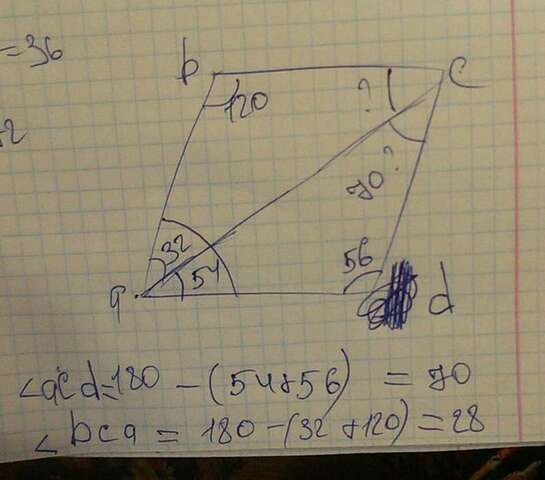 =36
b
c
120
?
2
70?
32
54
56
a
d
∠acd=180 - (54+56) = 70
∠bca = 180-(32+120)=28